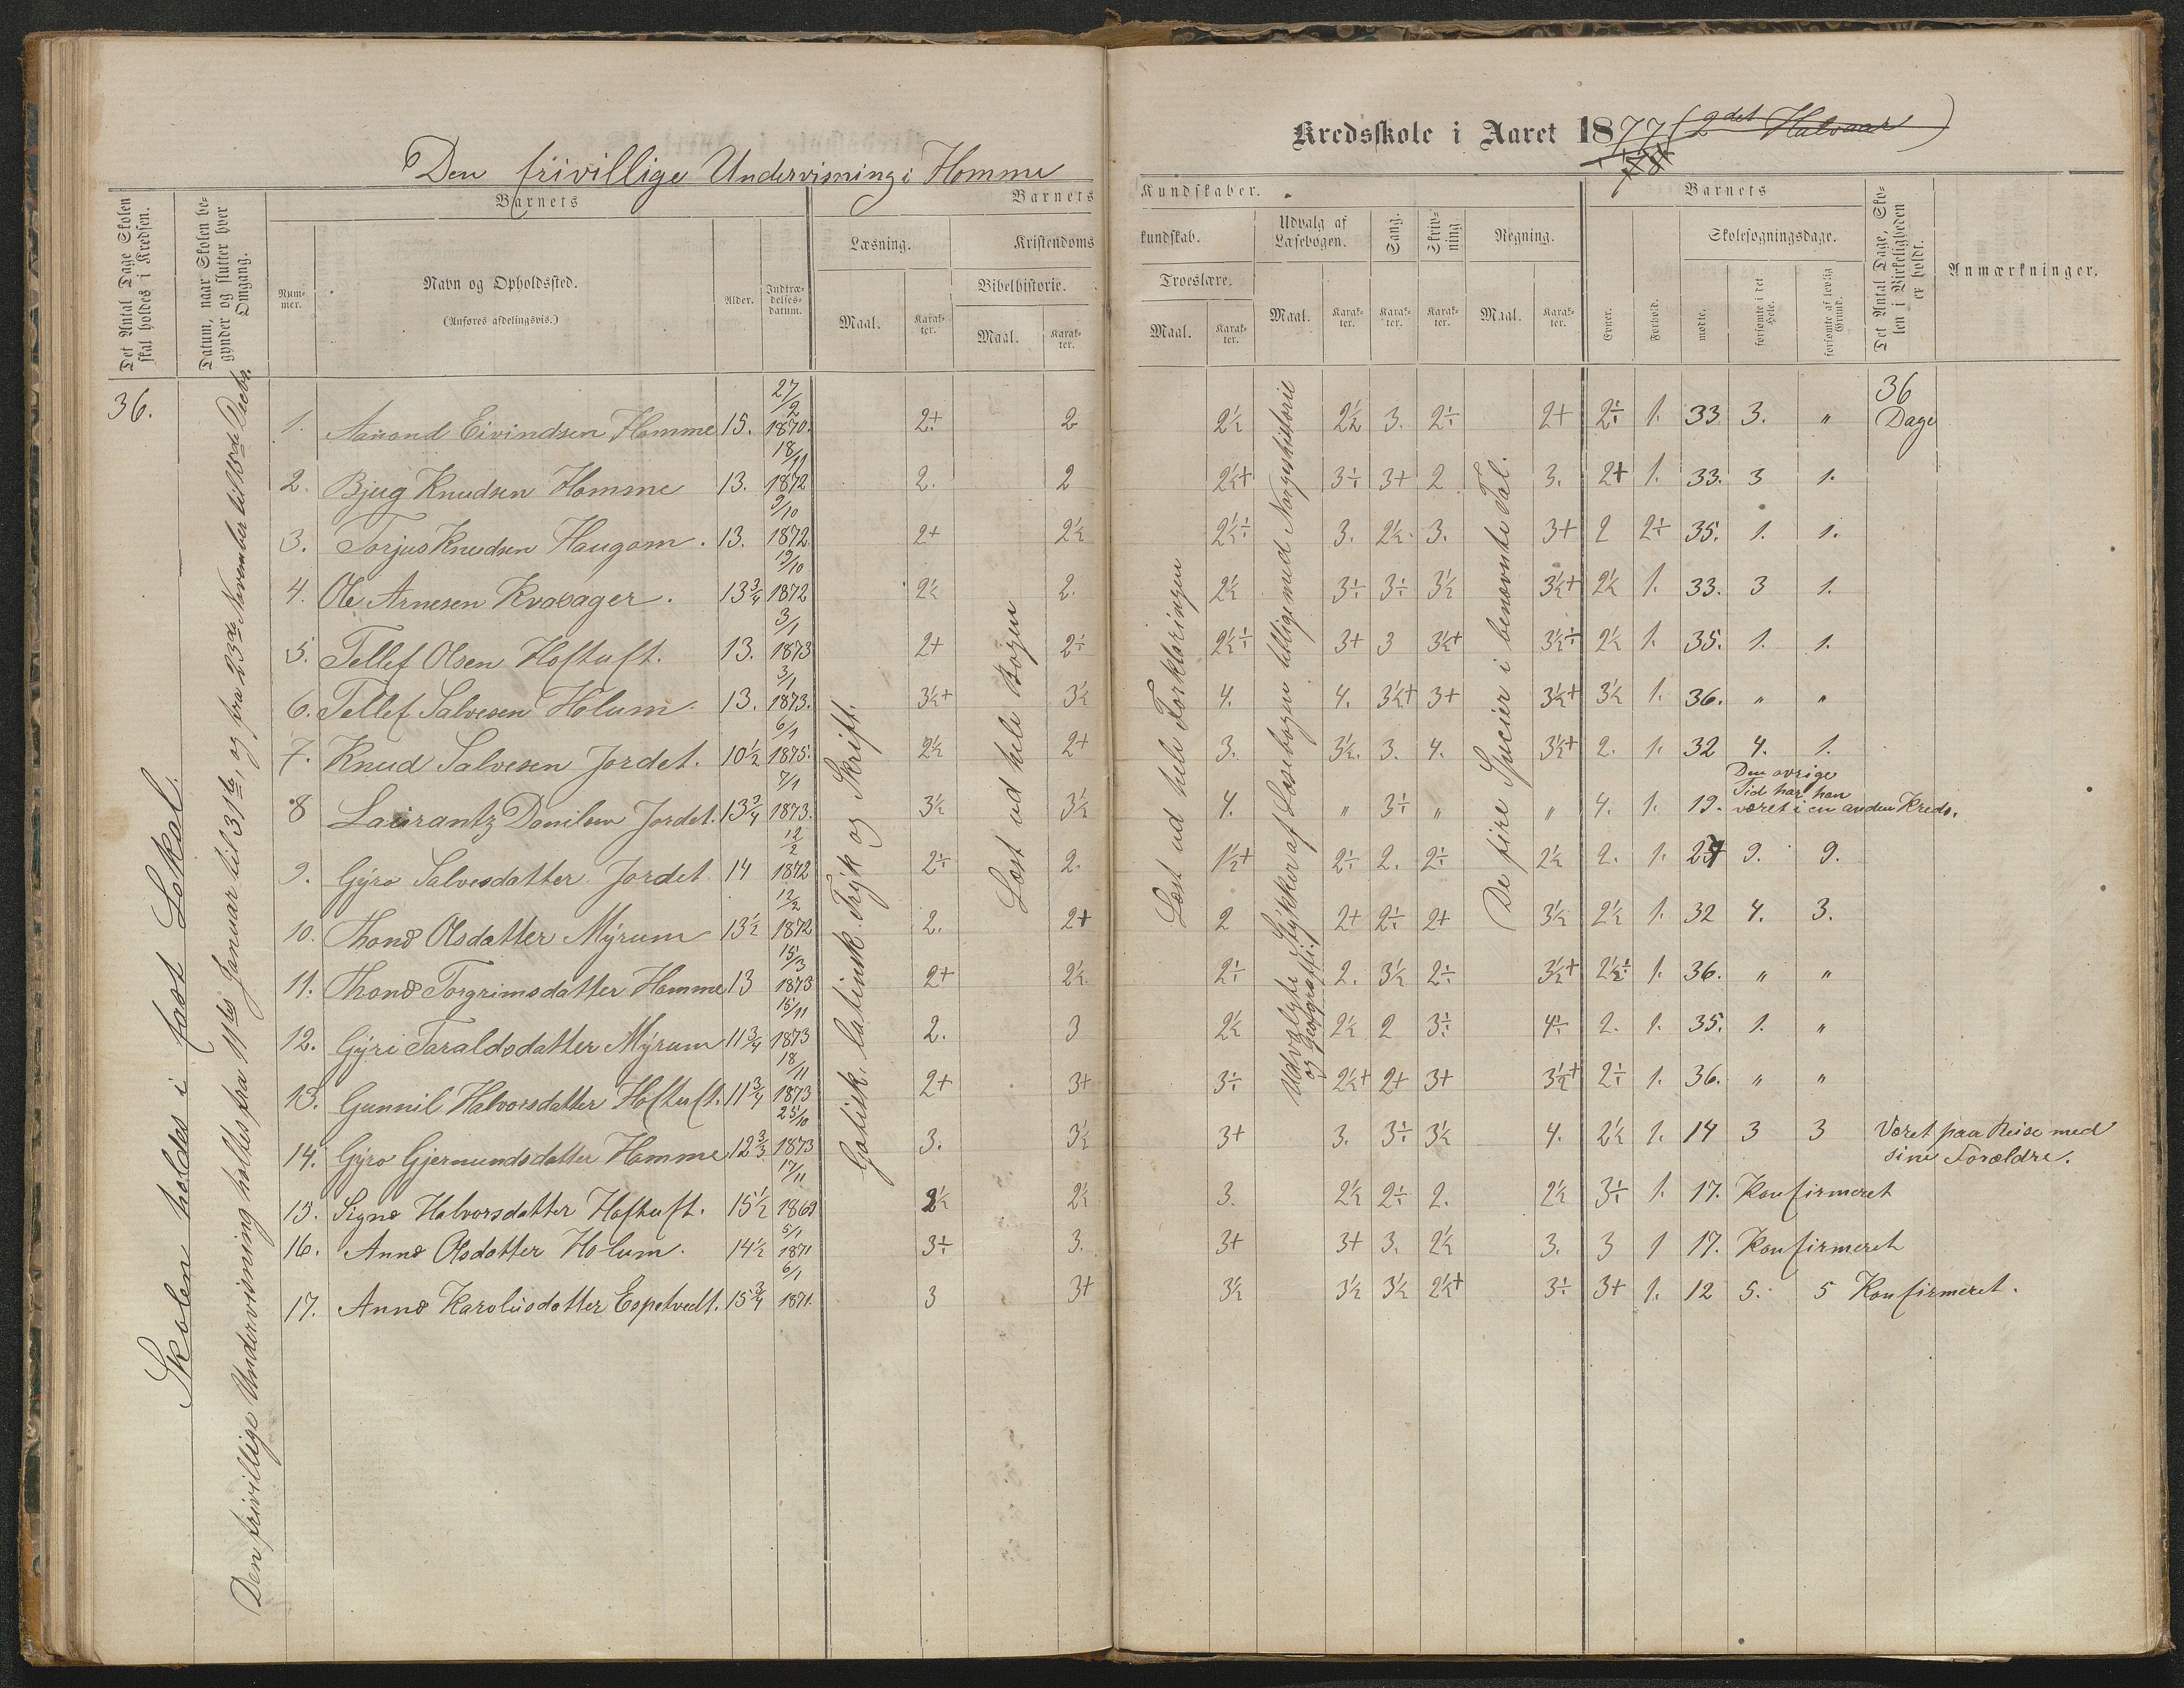 Den frivillige Undervisning i Homme
Kredsskole i Aaret 1877 (2det Halvaar)
78
Det Antal Dage Skolen skal holdes i Kredsen.
Datum, naar Skolen begynder og slutter hver Omgang.
Barnets
Nummer.
Navn og Opholdssted.
(Anføres afdelingsvis.)
Alder.
Indtrædelsesdatum.
Barnets Kundskaber.
Læsning.
Maal.
Karakter.
Kristendomskundskab.
Bibelhistorie.
Maal.
Karakter.
Troeslære.
Maal.
Karakter.
Udvalg af Læsebogen.
Maal.
Karakter.
Sang.
Karakter.
Skrivning.
Karakter.
Regning.
Maal.
Karakter.
Barnets
Evner.
Forhold.
Skolesøgningsdage.
mødte.
forsømte i det Hele.
forsømte af lovlig Grund.
Det Antal Dage, Skolen i Virkeligheden er holdt.
Anmærkninger.
36.
Skolen holdes i fast Lokal.
Den frivillige Undervisning holdtes fra 11te Januar til 31te, og fra 23de November til 15de Decbr.
Gotisk, latinsk Tryk og Skrift.
Læst ud hele Bogen
Læst ud hele Forklaringen
Udvalgte Stykker af Læsebogen tilligemed Norgeshistorie
og Geografi.
De fire Specier i benævnte Tal.
1. Aanond Eivindsen Homme 15. 27/2 1870. 2+ 2 2½ 2½ 3. 2÷ 2+ 2÷ 1. 33. 3. " 36 Dage
2. Bjug Knudsen Homme 13. 18/11 1872 2. 2 2½+ 3÷ 3+ 2 3. 2+ 1. 33. 3 1.
3. Torjus Knudsen Haugom. 13. 9/10 1872 2+ 2½ 2½÷ 3. 2½. 3. 3+ 2 2÷ 35. 1. 1.
4. Ole Arnesen Kvaasager. 13¾ 19/10 1872 2½ 2. 2½ 3÷ 3÷ 3½ 3½+ 2½ 1. 33. 3 1.
5. Tellef Olsen Hoftuft. 13. 3/1 1873 2+ 2÷ 2½÷ 3+ 3 3½+ 3½÷ 2½ 1. 35. 1. 1.
6. Tellef Salvesen Holum. 13. 3/1 1873. 3½+ 3½ 4. 4. 3½+ 3+ 3½+ 3½ 1. 36. " "
7. Knud Salvesen Jordet. 10½ 6/1 1875. 2½ 2+ 3. 3½. 3. 4. 3½+ 2. 1. 32 4. 1.
8 Laurantz Danilsen Jordet. 13¾ 7/1 1873. 3½ 3½ 4. " 3÷ " " 4. 1. 19. Den øvrige
Tid har han
været i en anden Kreds.
9. Gyro Salvesdatter Jordet 14 12/2 1872 2÷ 2. 1½+ 2÷ 2. 2÷ 2½ 2. 1. 27 9. 9.
10. Thone Olsdatter Myrum 13½ 12/2 1872 2. 2+ 2 2+ 2÷ 2+ 3½ 2½ 1. 32 4. 3.
11. Thone Torgrimsdatter Homme 13 15/3 1873 2+ 2½. 2÷ 2. 3½ 2÷ 3½+ 2½÷ 1. 36. " "
12. Gyri Taraldsdatter Myrum 11¾ 15/11 1873 2. 3 2½ 2½ 2 3÷ 4÷ 2. 1. 35. 1. "
13. Gunnil Halvorsdatter Hoftuft. 11¾ 18/11 1873 2+ 3+ 3÷ 2½+ 2+ 3+ 3½+ 2÷ 1. 36. " "
14. Gyro Gjermundsdatter Homme 12⅔ 25/10 1873 3. 3½ 3+ 3. 3÷ 3½ 4. 2½ 1. 14 3 3 Været paa Reise med
sine Forældre.
15. Signe Halvorsdatter Hoftuft. 15½ 17/11 1869 2½ 2½ 3. 2½ 2÷ 2. 2½ 3÷ 1. 17. Konfirmeret
16. Anne Olsdatter Holum. 14½ 5/1 1871 3÷ 3. 3+ 3+ 3. 2½ 3. 3 1 17. Konfirmeret
17. Anne Karolusdatter Espetvedt. 15¾ 6/1 1871. 3 3+ 3½ 3½ 3½ 2½+ 3÷ 3+ 1. 12 5. 5 Konfirmeret.